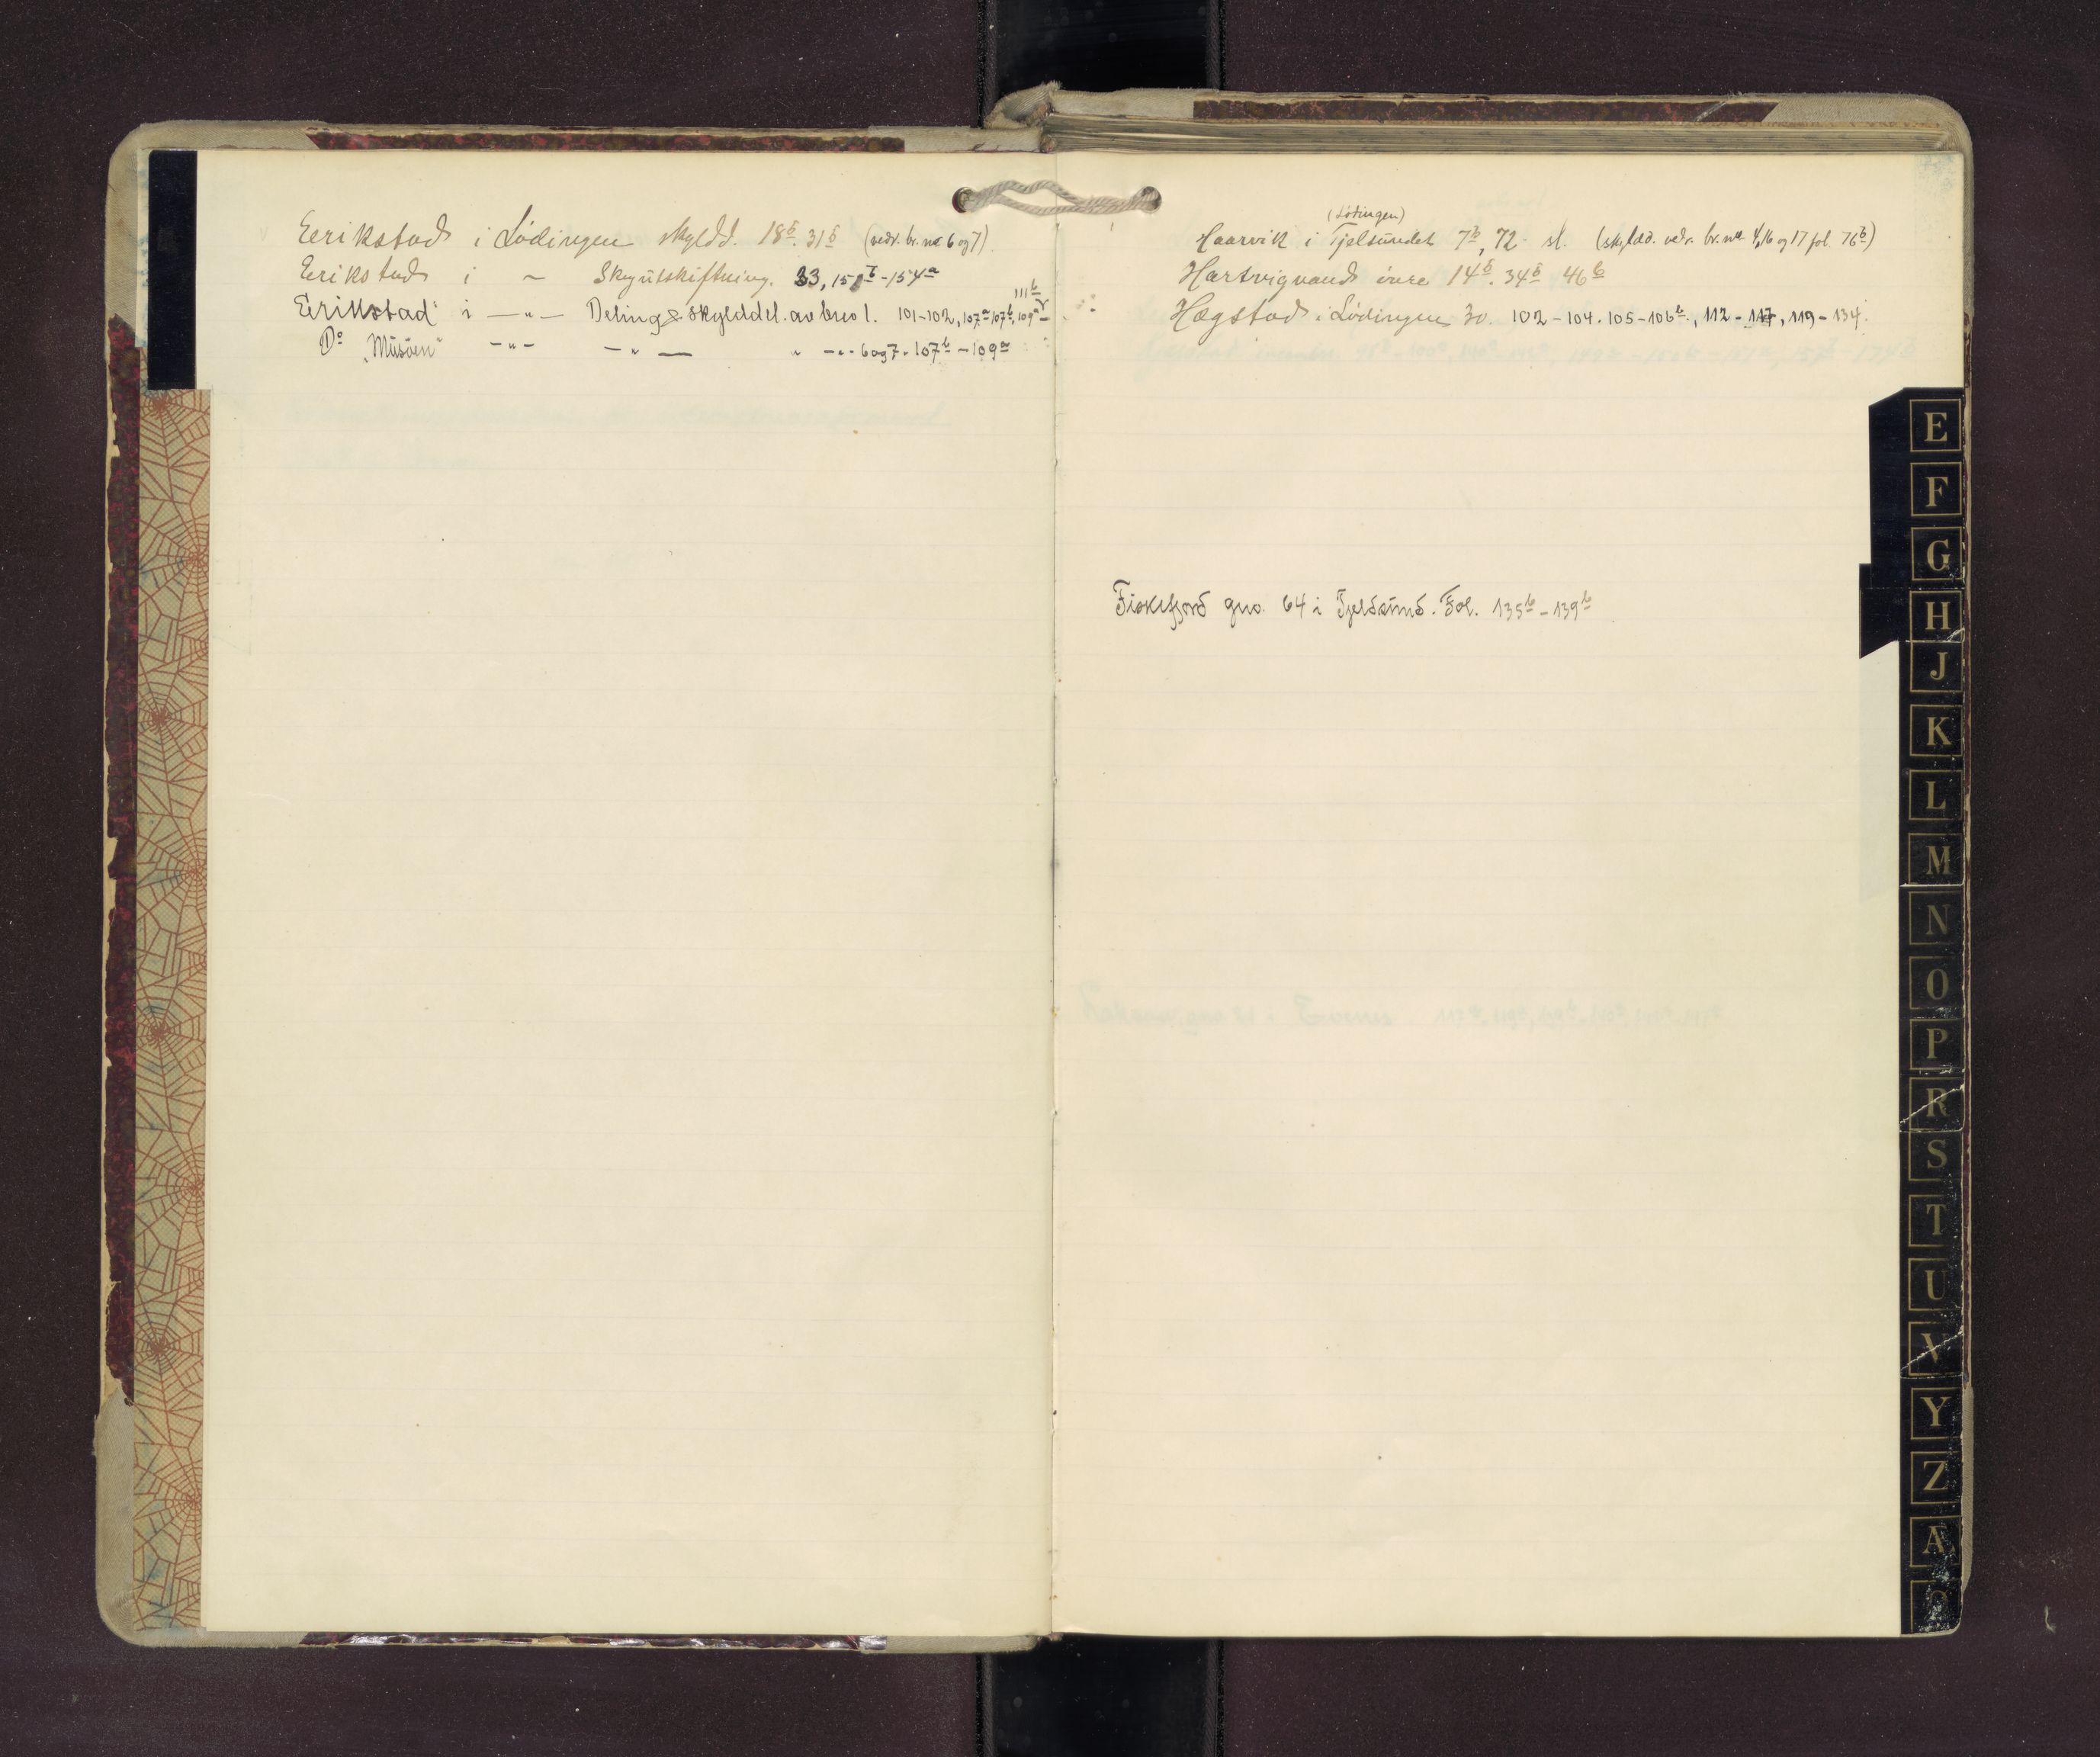 Eerikstad i Lødingen skyldd. 18b. 31b (vedr. br. no 6 og 7).
Eerikstad i ~ Skogutskiftning. 33, 151b-154a
111b
Erikstad i —„— Deling & skylddel. av bno 1. 101-102, 107a 107b, 109a-
Do „Müsøen" -„- -„— „ -„- 6 og 7. 107b-109a
(Lødingen)
Haarvik i Tjelsundet 7b, 72 sl. (skyldd. vedr. br. no 4, 16 og 17 fol. 76b)
Hartvigvand inre 14b. 34b 46b
Hægstad i Lødingen 30. 102-104. 105-106b., 112-117, 119-134.
Fiskefjord gno. 64 i Tjeldsund. Fol. 135b-139b
E
F
G
H
J
K
L
M
N
O
P
R
S
T
U
V
Y
Z
Æ